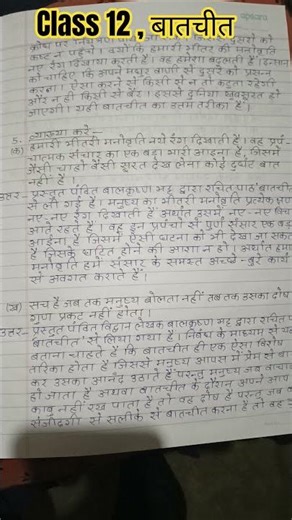 Class 12 , बातचीत
क्रोध पर नियंत्रण
कष्ट न पहुंचे। क्योंकि हमारी भीतर की मनोवृति
नए रंग दिखाया करती है। वह हमेशा बदलती है। इन्सान
को चाहिए कि अपने मधुर वाणी से दूसरे को प्रसन्न
करना। ऐसा करने से किसी से न तो कटुता रहेगी
और न ही किसी से बैर। इससे दुनिया खूबसूरत हो
जाएगी। यही बातचीत का उतम तरीका है।
5- व्याख्या करें:-
(क) हमारी भीतरी मनोवृति नये रंग दिखाती है। वह प्रपं-
चात्मक संसार का एक बड़ा भारी आइना है, जिसमें
जैसी चाहो वैसी सूरत देख लेना कोई दुर्घट बात
नहीं है।
उतर- प्रस्तुत पंक्ति बालकृष्ण भट्ट द्वारा रचित पाठ बातचीत
से ली गई है। मनुष्य की भीतरी मनोवृति प्रत्येक क्षण
नए-नए रंग दिखाती है अर्थात उसमें नए-नए विचार
आते रहते हैं। वह इन प्रपंचों से पूर्ण संसार एक बड़ा
आइना है जिसमें ऐसी घटना को भी देखा जा सकता
है जिसके घटित होने की आशा न हो। अर्थात हमारी
मनोवृति हमें संसार के समस्त अच्छे-बुरे कार्यों
से अवगत कराते हैं।
(ख) सच है जब तक मनुष्य बोलता नहीं तब तक उसका दोष
गुण प्रकट नहीं होता।
उतर- प्रस्तुत पंक्ति विद्वान लेखक बालकृष्ण भट्ट द्वारा रचित
'बातचीत' से लिया गया है। निबंध के माध्यम से यह
बताना चाहते हैं कि बातचीत ही एक ऐसा विशेष
तरिका होता है जिससे मनुष्य आपस में प्रेम से बा
कर उसका आनंद उठाते हैं परन्तु मनुष्य जब वाचा
हो जाता है अथवा बातचीत के दौरान अपने आप
काबू नहीं रख पाता है तो वह दोष है परन्तु जब व
संजीदगी से सलीके से बातचीत करना है तो वह गु